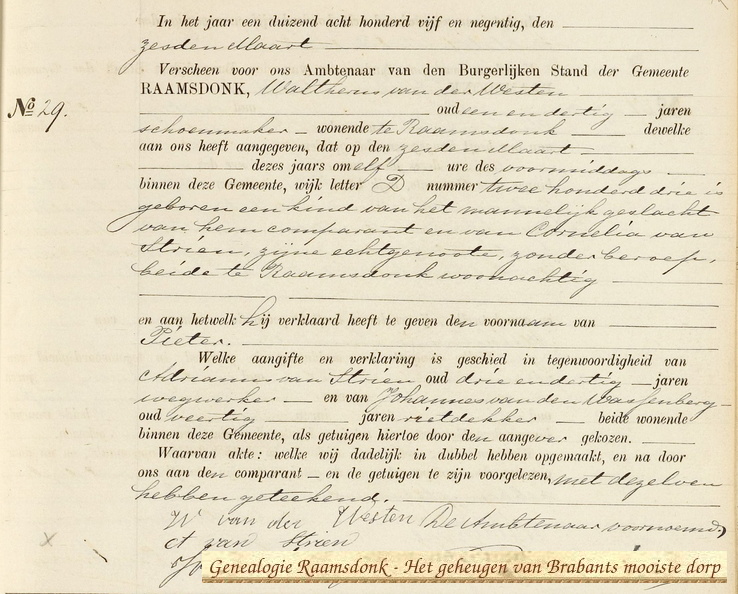 In het jaar een duizend acht honderd vijf en negentig, den
zesden Maart
Verscheen voor ons Ambtenaar van den Burgerlijken Stand der Gemeente
RAAMSDONK, Waltherus van der Westen
No 29.
oud een en dertig jaren
schoenmaker wonende te Raamsdonk dewelke
aan ons heeft aangegeven, dat op den zesden Maart
dezes jaars om elf ure des voormiddags
binnen deze Gemeente, wijk letter D nummer twee honderd drie is
geboren een kind van het mannelijk geslacht
van hem comparant en van Cornelia van
Strien, zijne echtgenoote, zonder beroep,
beide te Raamsdonk woonachtig
en aan hetwelk hij verklaard heeft te geven den voornaam van
Pieter.
Welke aangifte en verklaring is geschied in tegenwoordigheid van
Adrianus van Strien oud drie en dertig jaren
wegwerker en van Johannes van den Wassenberg
oud veertig jaren rietdekker beide wonende
binnen deze Gemeente, als getuigen hiertoe door den aangever gekozen.
Waarvan akte: welke wij dadelijk in dubbel hebben opgemaakt, en na door
ons aan den comparant en de getuigen te zijn voorgelezen, met dezelven
hebben geteekend.
W van der Westen De Ambtenaar voornoemd,
A van Strien
Genealogie Raamsdonk - Het geheugen van Brabants mooiste dorp